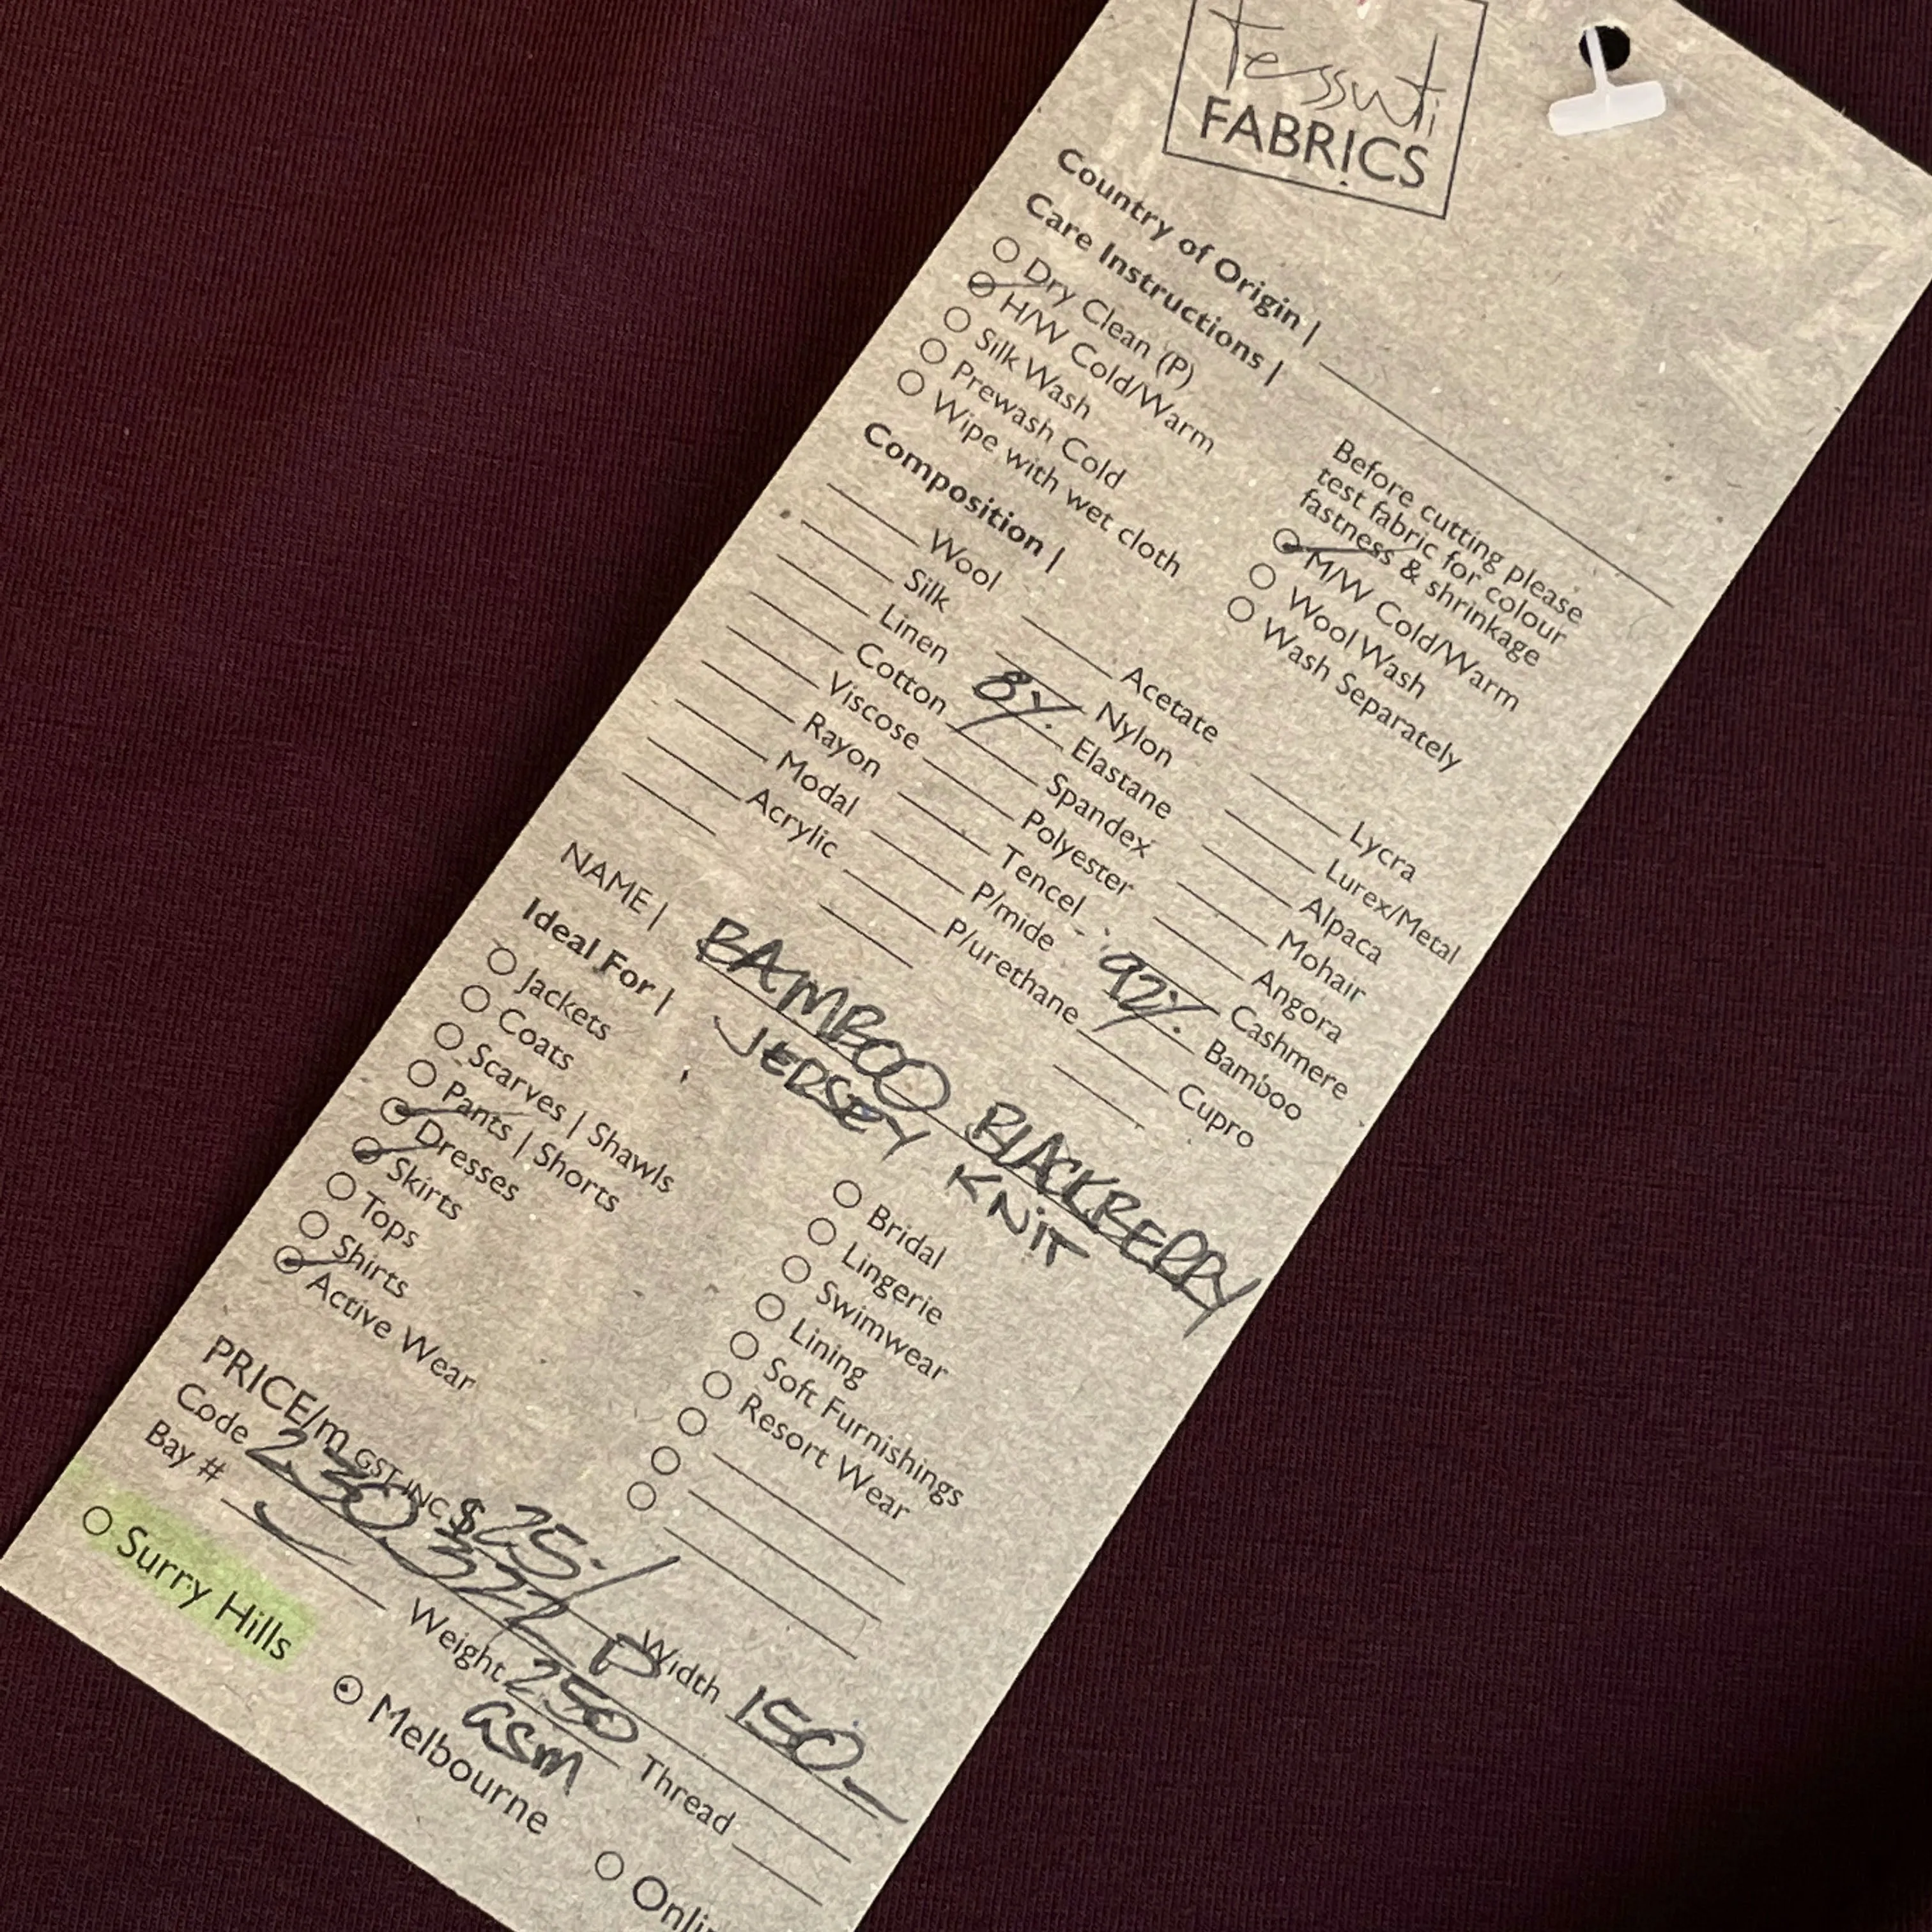 tessuti
FABRICS
Country of Origin |
Care Instructions |
Dry Clean (P)
H/W Cold/Warm
Silk Wash
Prewash Cold
Wipe with wet cloth
Before cutting please
test fabric for colour
fastness & shrinkage
M/W Cold/Warm
Wool Wash
Wash Separately
Composition |
Wool Acetate Lycra
Silk Nylon Lurex/Metal
Linen 8% Elastane Alpaca
Cotton Spandex Mohair
Viscose Polyester Angora
Rayon Tencel Cashmere
Modal P/mide 92% Bamboo
Acrylic P/urethane Cupro
NAME | BAMBOO BLACKBERRY
JERSEY KNIT
Ideal For |
Jackets
Coats
Scarves | Shawls
Pants | Shorts
Dresses
Skirts
Tops
Shirts
Active Wear
Bridal
Lingerie
Swimwear
Lining
Soft Furnishings
Resort Wear
PRICE/m GST INC $25.
Code Width 150
Bay # Weight 250 GSM Thread
Surry Hills Melbourne